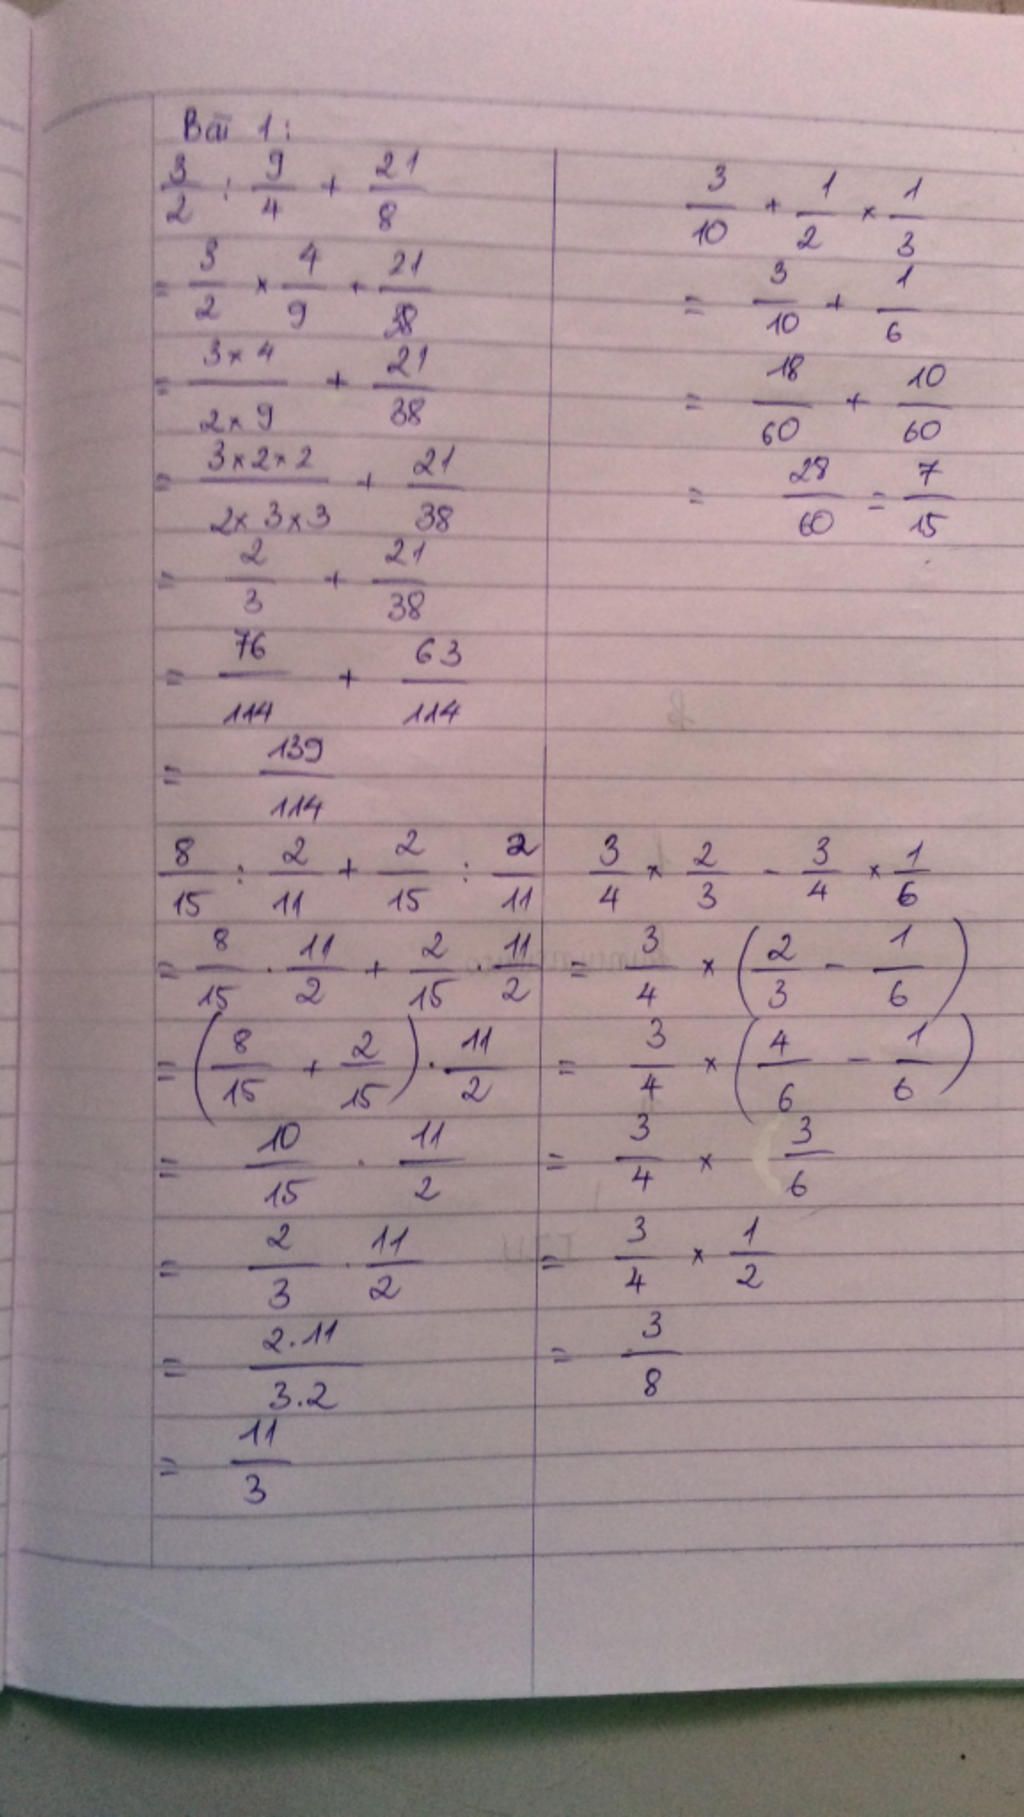 Bài 1:
3/2 : 9/4 + 21/8
= 3/2 × 4/9 + 21/38
= 3×4/2×9 + 21/38
= 3×2×2/2×3×3 + 21/38
= 2/3 + 21/38
= 76/114 + 63/114
= 139/114
3/10 + 1/2 × 1/3
= 3/10 + 1/6
= 18/60 + 10/60
= 28/60 = 7/15
8/15 : 2/11 + 2/15 : 2/11
= 8/15 . 11/2 + 2/15 . 11/2
= (8/15 + 2/15) . 11/2
= 10/15 . 11/2
= 2/3 . 11/2
= 2.11/3.2
= 11/3
3/4 × 2/3 - 3/4 × 1/6
= 3/4 × (2/3 - 1/6)
= 3/4 × (4/6 - 1/6)
= 3/4 × 3/6
= 3/4 × 1/2
= 3/8